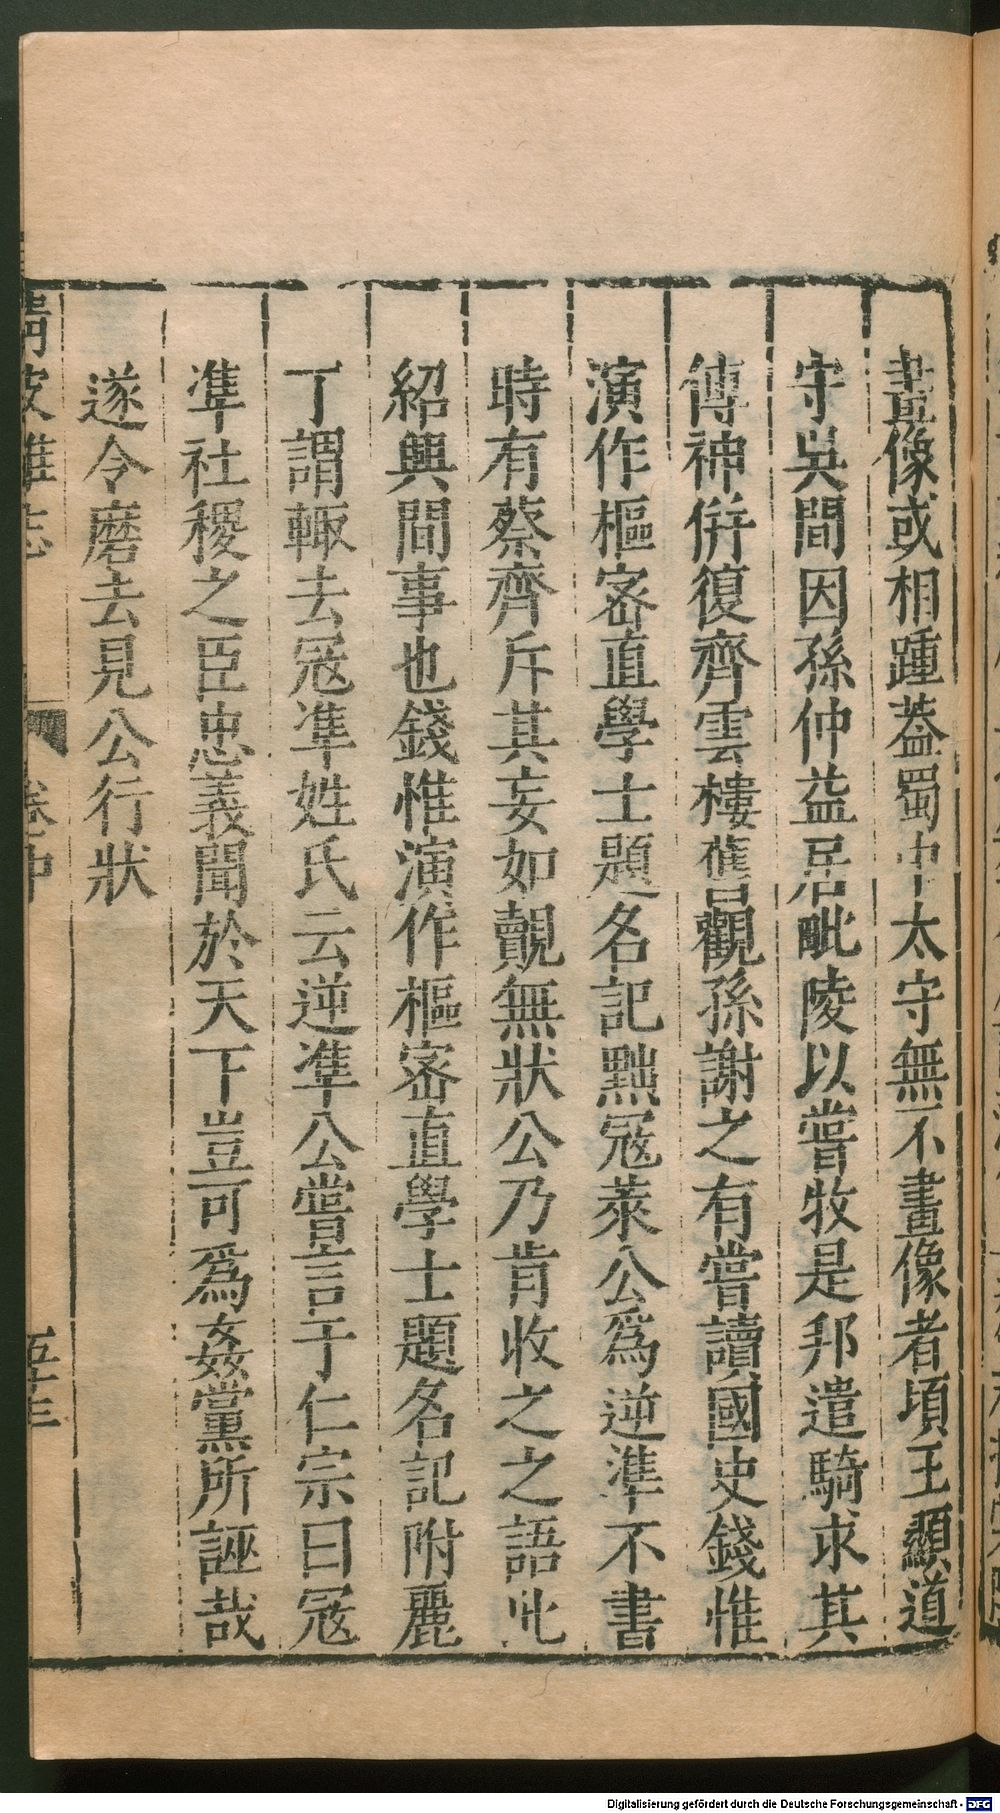 畫像或相踵葢蜀中太守無不畫像者頃王顯道
守吳間因孫仲益居毗陵以嘗牧是邦遣騎求其
傳神倂復齊雲樓舊觀孫謝之有嘗讀國史錢惟
演作樞密直學士題名記黜冦萊公爲逆準不書
時有蔡齊斥其妄如覿無狀公乃肯收之之語此
紹興間事也錢惟演作樞密直學士題名記附麗
丁謂輙去冦凖姓氏云逆凖公嘗言于仁宗曰冦
凖社稷之臣忠義聞於天下豈可爲姦黨所誣哉
遂令磨去見公行狀
清波雜志 卷中 五十三
Digitalisierung gefördert durch die Deutsche Forschungsgemeinschaft - DFG